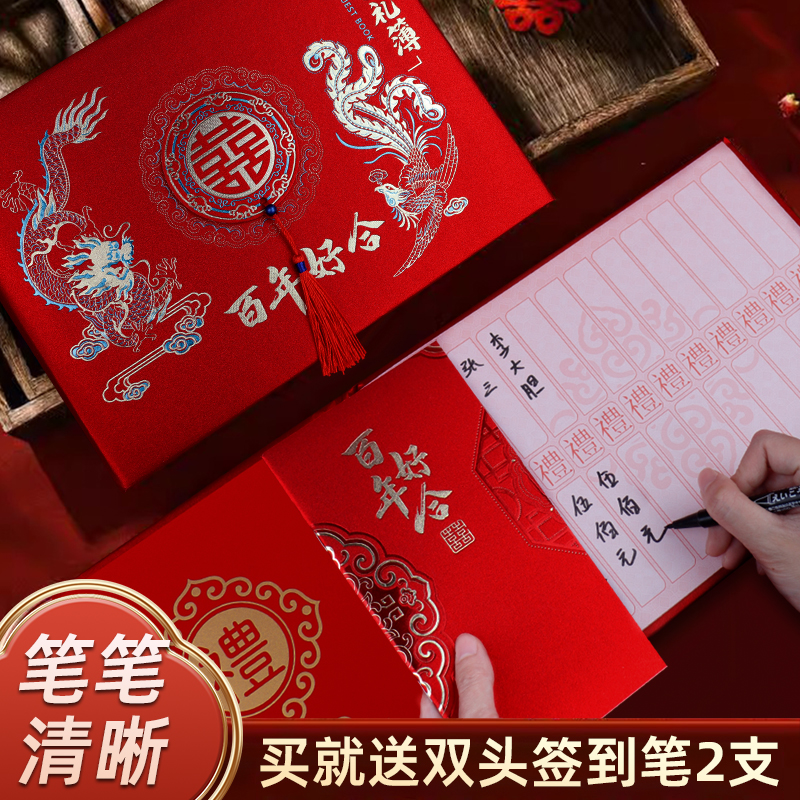 礼簿
GUEST BOOK
囍
百年好合
張三
李大胆
禮禮禮禮禮禮禮禮禮
伍佰元
伍佰元
百年好合
囍
禮
笔笔
清晰
买就送双头签到笔2支